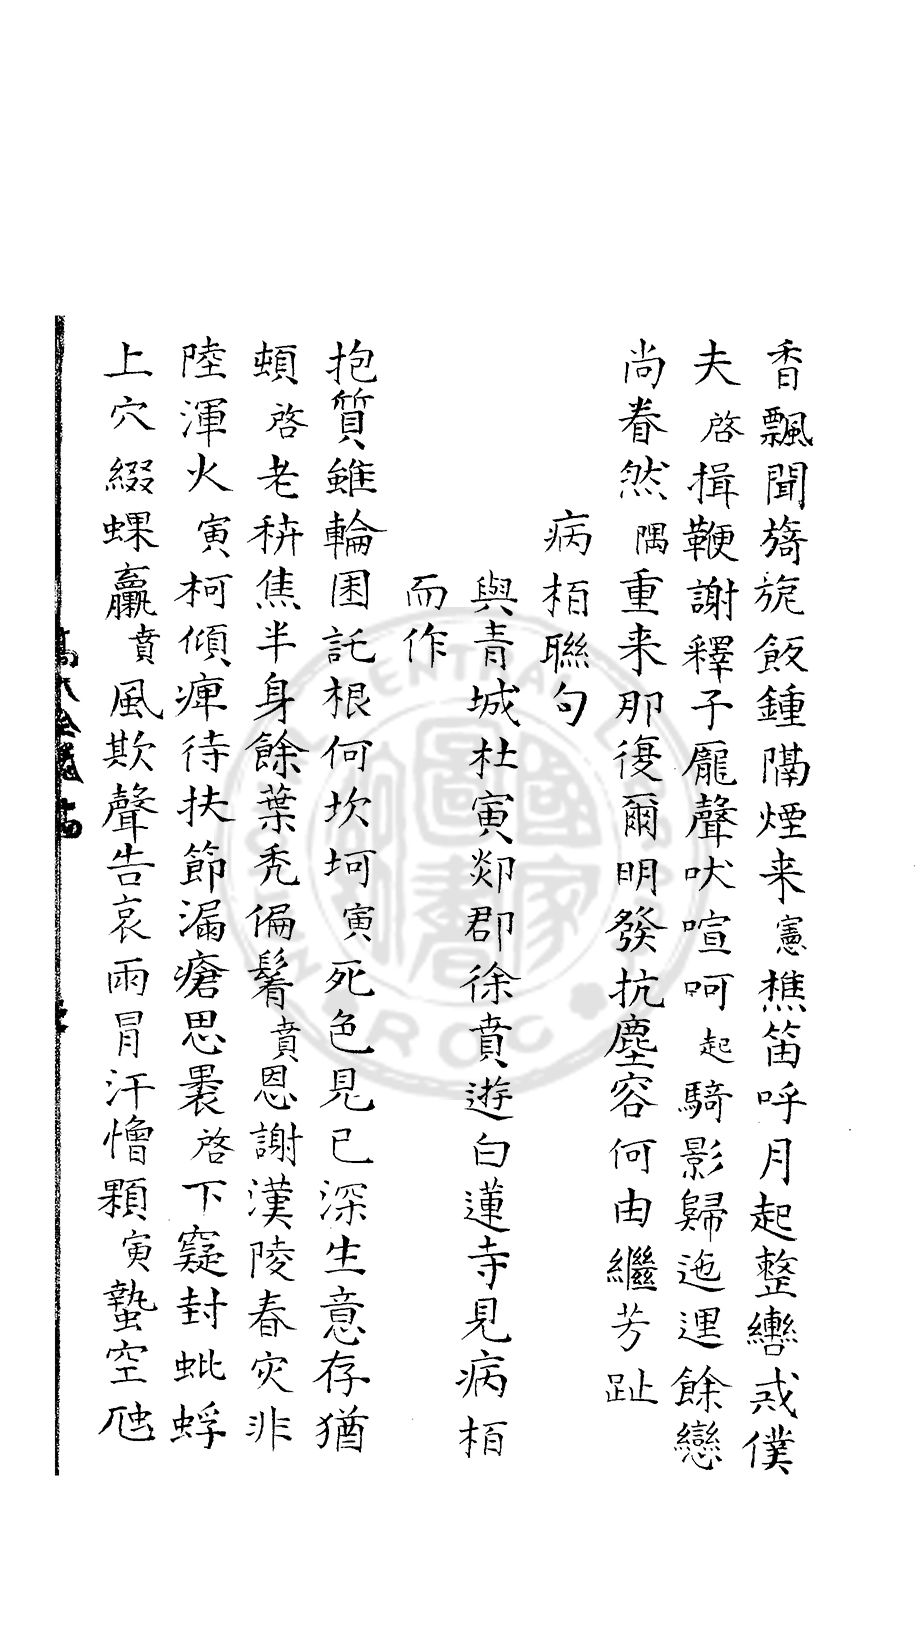 香飄聞旖旎飯鍾隔煙来憲樵笛呼月起整轡戒僕
夫啓揖鞭謝釋子龐聲吠喧呵起騎影歸迤逕餘戀
尚眷然隅重来那復爾明發抗塵容何由繼芳趾
病栢聯句
與青城杜寅郯郡徐賁遊白蓮寺見病栢
而作
抱質雖輪囷託根何坎坷寅死色見已深生意存猶
頓啓老秡焦半身餘葉秃偏鬌賁恩謝漢陵春灾非
陸渾火寅柯傾痺待扶節漏瘡思裹啓下窺封蚍蜉
上穴綴蜾蠃賁風欺聲告哀雨冒汗憎顆寅蟄空虺
國家圖書館
NATIONAL CENTRAL LIBRARY R.O.C.